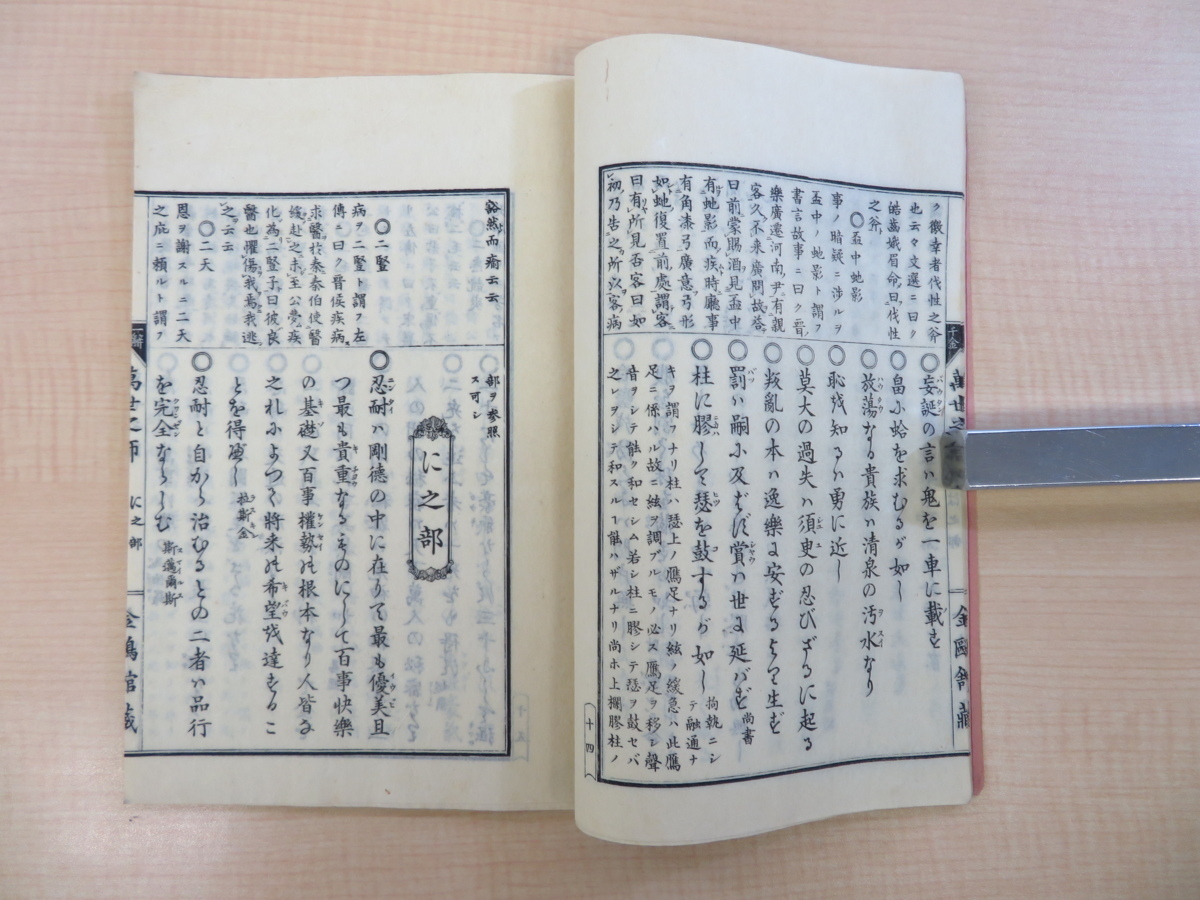 ク徼幸者代性之斧
也云々文選ニ曰ク
皓齒娥眉命曰伐性
之斧
〇盃中蛇影
事ノ暗疑ニ渉ルヲ
盃中ノ蛇影ト謂フ
書言故事ニ曰ク晉
樂廣遷河南尹有親
客久不来廣問故答
曰前蒙賜酒見盃中
有蛇影而疾時廳事
有角漆弓廣意弓形
如蛇復置前處謂客
曰有所見否客曰如
初乃告之所以客病
〇妄誕の言ハ鬼を一車に載す
〇畠に蛤を求むるが如し
〇放蕩なる貴族ハ清泉の汚水なり
〇恥を知るハ勇に近し
〇莫大の過失ハ須臾の忍びざるに起る
〇叛亂の本ハ逸樂に安ずるより生ず
〇罰ハ嗣に及ばず賞ハ世に延ばす 尚書
〇柱に膠して瑟を鼓するが如し 拘執ニシテ融通ナ
キヲ謂フナリ柱ハ瑟上ノ鴈足ナリ絃ノ緩急ハ此鴈
足ニ係ハル故ニ絃ヲ調ブルモノ必ス鴈足ヲ移シ聲
音ヲシテ能ク和セシム若シ柱ニ膠シテ瑟ヲ鼓セバ
之レヲシテ和スルコ能ハザルナリ尚ホ上欄膠柱ノ
十四
千金
萬世之
金鴎舘藏
豁然而瘉云云
〇二豎
病ヲ二豎ト謂フ左
傳ニ曰ク晉侯疾病
求醫於秦秦伯使醫
緩赴之未至公夢疾
化為二豎子曰彼良
醫也懼傷我焉我逃
之云云
〇二天
恩ヲ謝スルニ二天
之庇ニ頼ルト謂フ
部ヲ参照
ス可シ
に之部
〇忍耐ハ剛德の中に在りて最も優美且
つ最も貴重なるものにして百事快樂
の基礎又百事權勢の根本なり人皆な
之れによつて将来の希望を達するこ
とを得べし 拉斯金
〇忍耐と自から治むるとの二者ハ品行
を完全ならしむ 斯邁爾斯
萬世之師
に之部